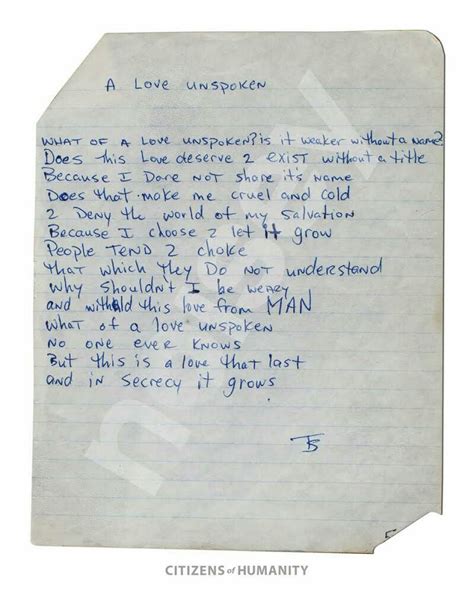 A LOVE UNSPOKEN
WHAT OF A LOVE UNSPOKEN? is it weaker without a name?
Does this Love deserve 2 exist without a title
Because I Dare not share it's name
Does that make me cruel and cold
2 Deny the world of my salvation
Because I choose 2 let it grow
People TEND 2 choke
that which they Do not understand
Why shouldn't I be weary
and withold this love from MAN
what of a love unspoken
no one ever knows
But this is a love that last
and in secrecy it grows
CITIZENS of HUMANITY